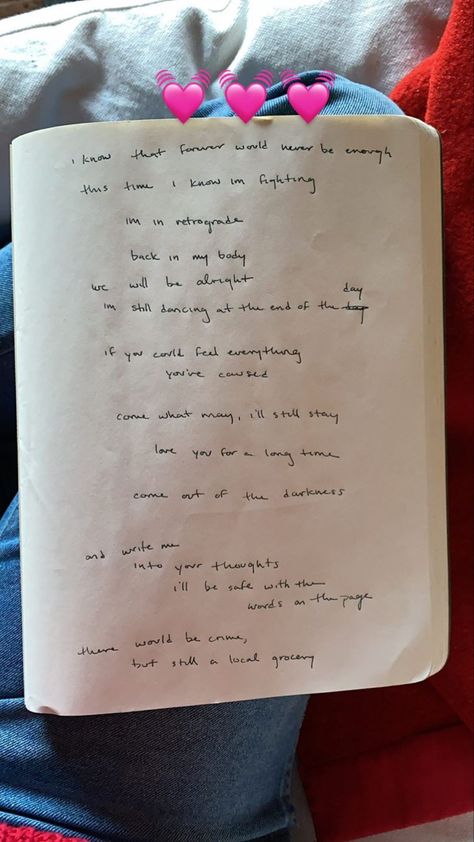 i know that forever would never be enough
this time i know im fighting
im in retrograde
back in my body
we will be alright
im still dancing at the end of the day day
if you could feel everything
you've caused
come what may, i'll still stay
love you for a long time
come out of the darkness
and write me
into your thoughts
i'll be safe with the
words on the page
there would be crime,
but still a local grocery